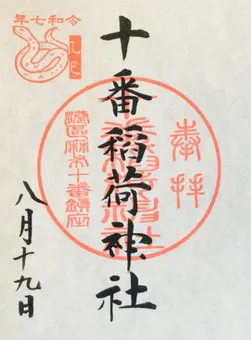 令和七年
乙巳
奉拝
十番稲荷神社
港区麻布十番鎮座
八月十九日